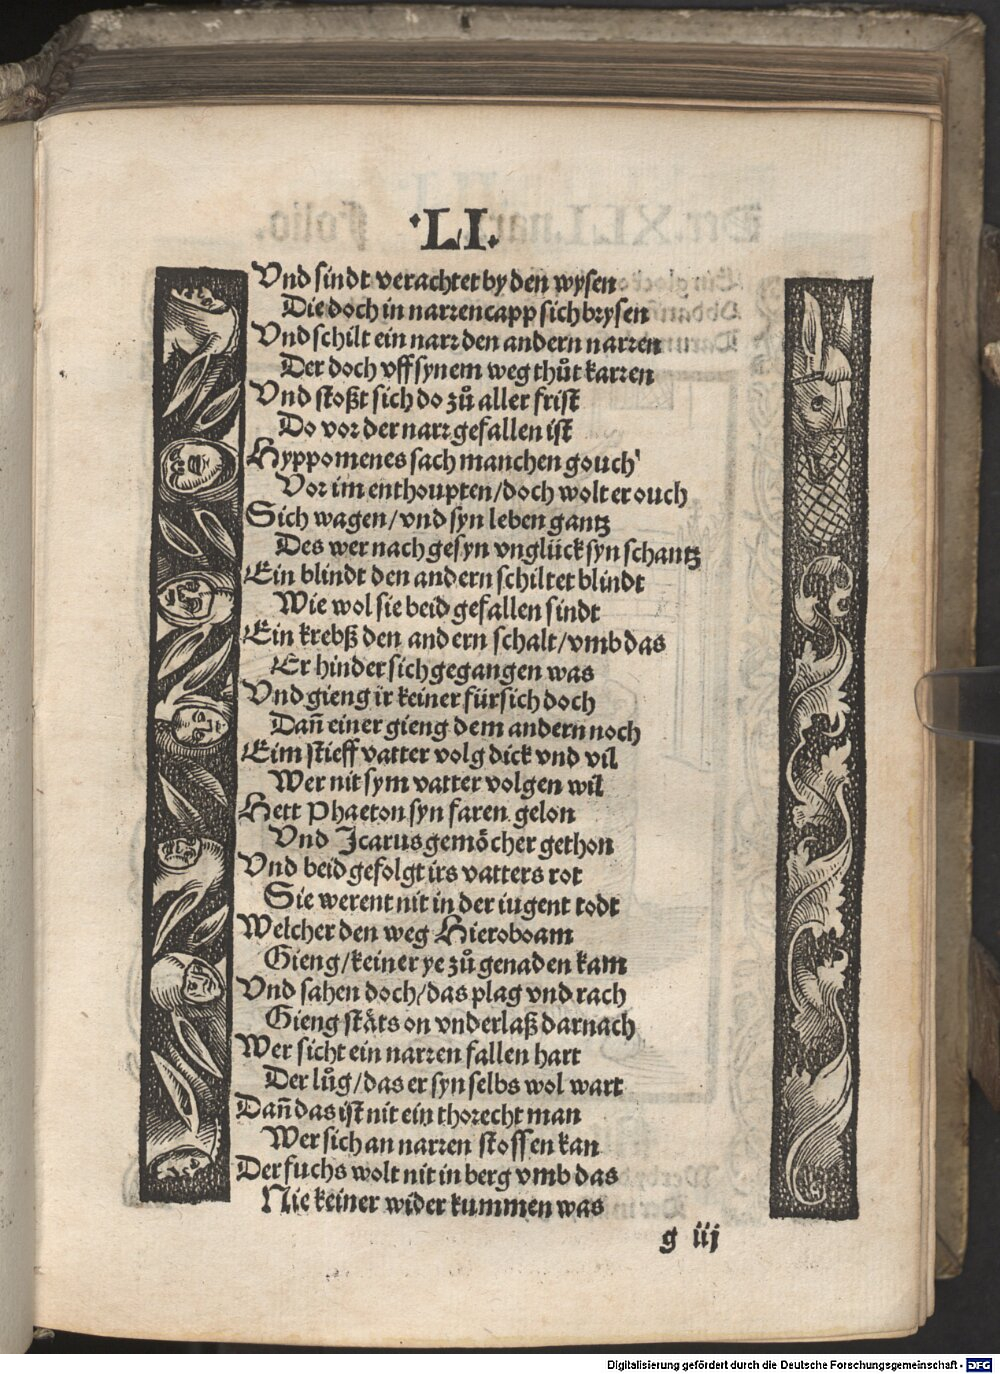 ·LI·
Vnd sindt verachtet by den wysen
Die doch in narrencapp sich brysen
Vnd schilt ein narr den andern narren
Der doch vff synem weg thůt karren
Vnd stoßt sich do zů aller frist
Do vor der narr gefallen ist
Hyppomenes sach manchen gouch
Vor im enthoupten/doch wolt er ouch
Sich wagen/vnd syn leben gantz
Des wer nach gesyn vnglück syn schantz
Ein blindt den andern schiltet blindt
Wie wol sie beid gefallen sindt
Ein krebß den andern schalt/vmb das
Er hindersich gegangen was
Vnd gieng ir keiner fürsich doch
Dañ einer gieng dem andern noch
Eim stieff vatter volg dick vnd vil
Wer nit sym vatter volgen wil
Hett Phaeton syn faren gelon
Vnd Icarus gemöcher gethon
Vnd beid gefolgt irs vatters rot
Sie werent nit in der iugent todt
Welcher den weg Hieroboam
Gieng/keiner ye zů genaden kam
Vnd sahen doch/das plag vnd rach
Gieng stäts on vnderlaß darnach
Wer sicht ein narren fallen hart
Der lůg/das er syn selbs wol wart
Dañ das ist nit ein thorecht man
Wer sich an narren stossen kan
Der fuchs wolt nit in berg vmb das
Nie keiner wider kummen was
g iij
Digitalisierung gefördert durch die Deutsche Forschungsgemeinschaft - DFG